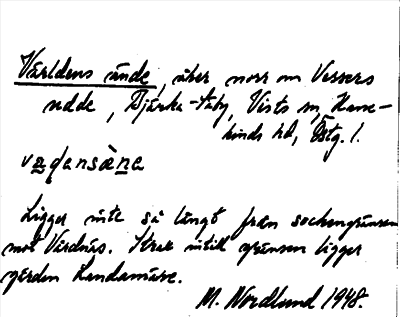 Världens ände, åker norr om Versers
udde, Bjärka-Säby, Vists sn, Hane-
kinds hd, Östg. l.
Ligger inte så långt från sockengränsen
mot Vårdnäs. Strax intill gränsen ligger
gården Landamäre.
M. Nordlund 1948.